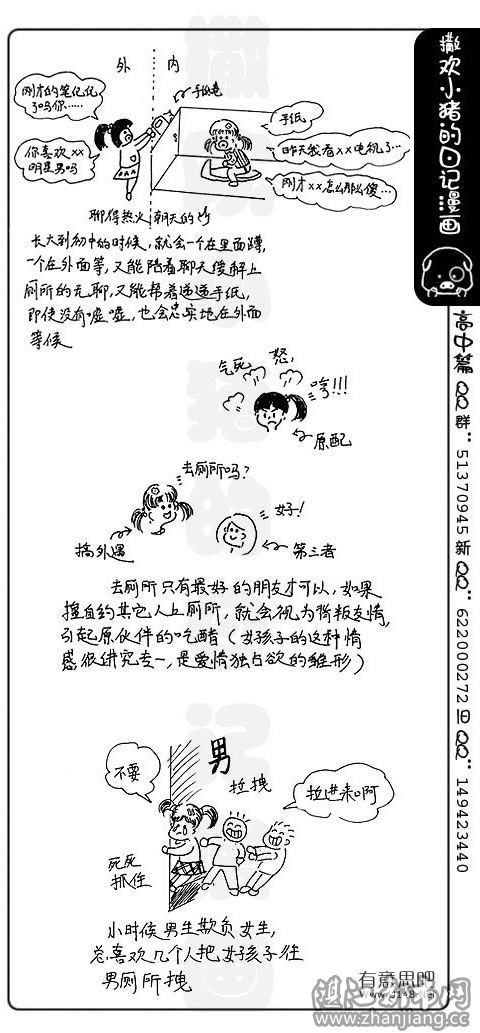 外 内
手纸
刚才的笔化化
了吗你……
手纸
昨天我看××电视了…
你喜欢××
明星男吗
刚才××怎么那么傻…
聊得热火朝天的时
长大到初中的时候，就会一个在里面蹲，
一个在外面等，又能陪着聊天缓解上
厕所的无聊，又能帮着递递手纸，
即使没有嘘嘘，也会忠实地在外面
等候
气死 怒，
哼!!!
原配
去厕所吗？
好！
搞外遇
第三者
去厕所只有最好的朋友才可以，如果
擅自约其它人上厕所，就会视为背叛友情，
引起原伙伴的吃醋（女孩子的这种情
感很讲究专一，是爱情独占欲的雏形）
男
不要
拉拽
拉进来啊
死死
抓住
小时候男生欺负女生，
总喜欢几个人把女孩子往
男厕所拽
撒欢小猪的日记漫画
高中篇 QQ群：51370945 新QQ：622000272 旧QQ：149423440
有意思吧
www.u148.net
湛江新中网
www.zhanjiang.cc